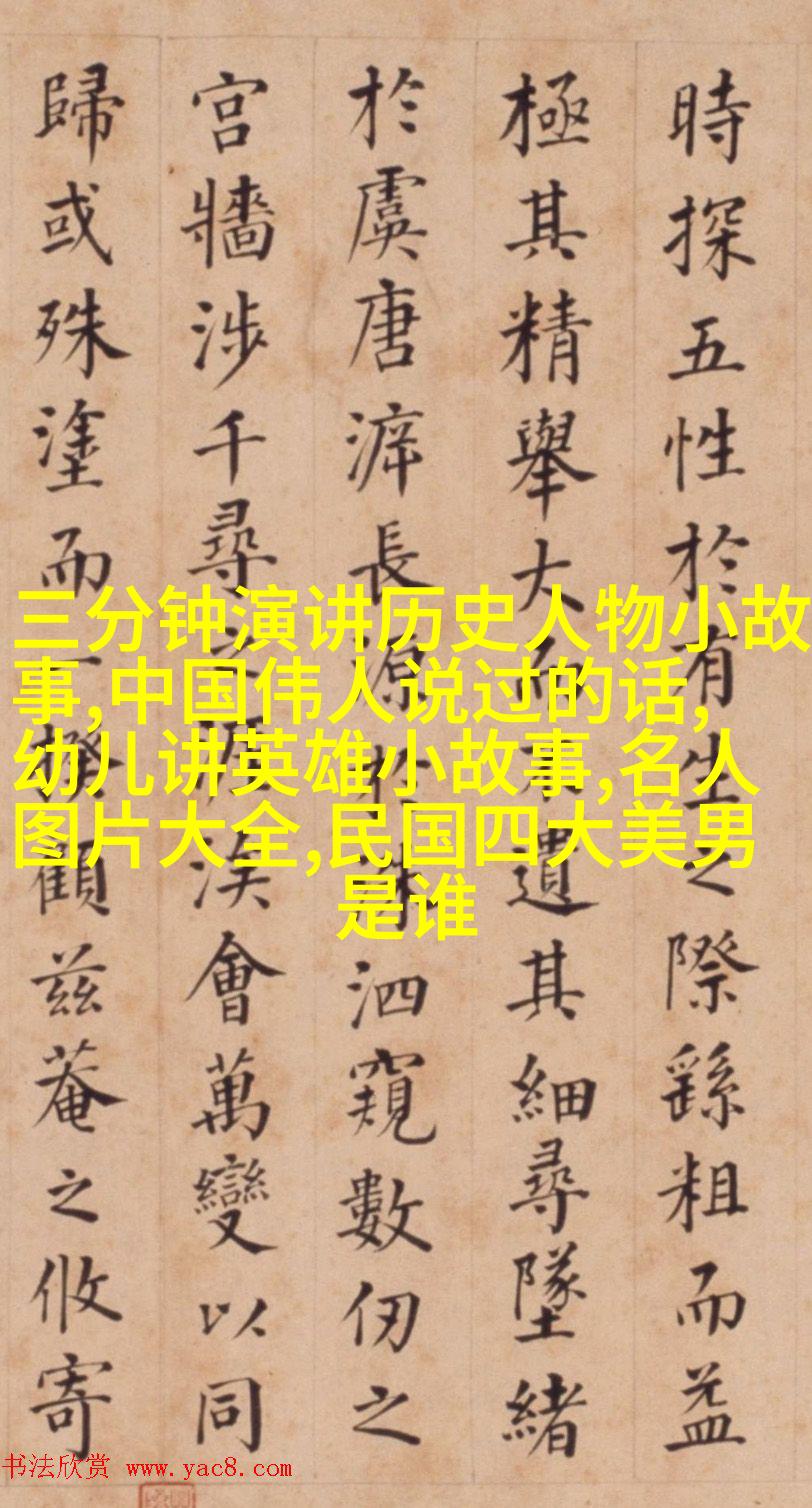 時探五性於有生之際繇粗而益
極其精舉大而不遺其細尋墜緒
於虞唐長源於洙泗窺數仞之
宮牆涉千尋之涘會萬變以同
歸或殊塗而一揆顧兹菴之攸寄
三分钟演讲历史人物小故
事,中国伟人说过的话,
幼儿讲英雄小故事,名人
图片大全,民国四大美男
是谁
书法欣赏 www.yac8.com